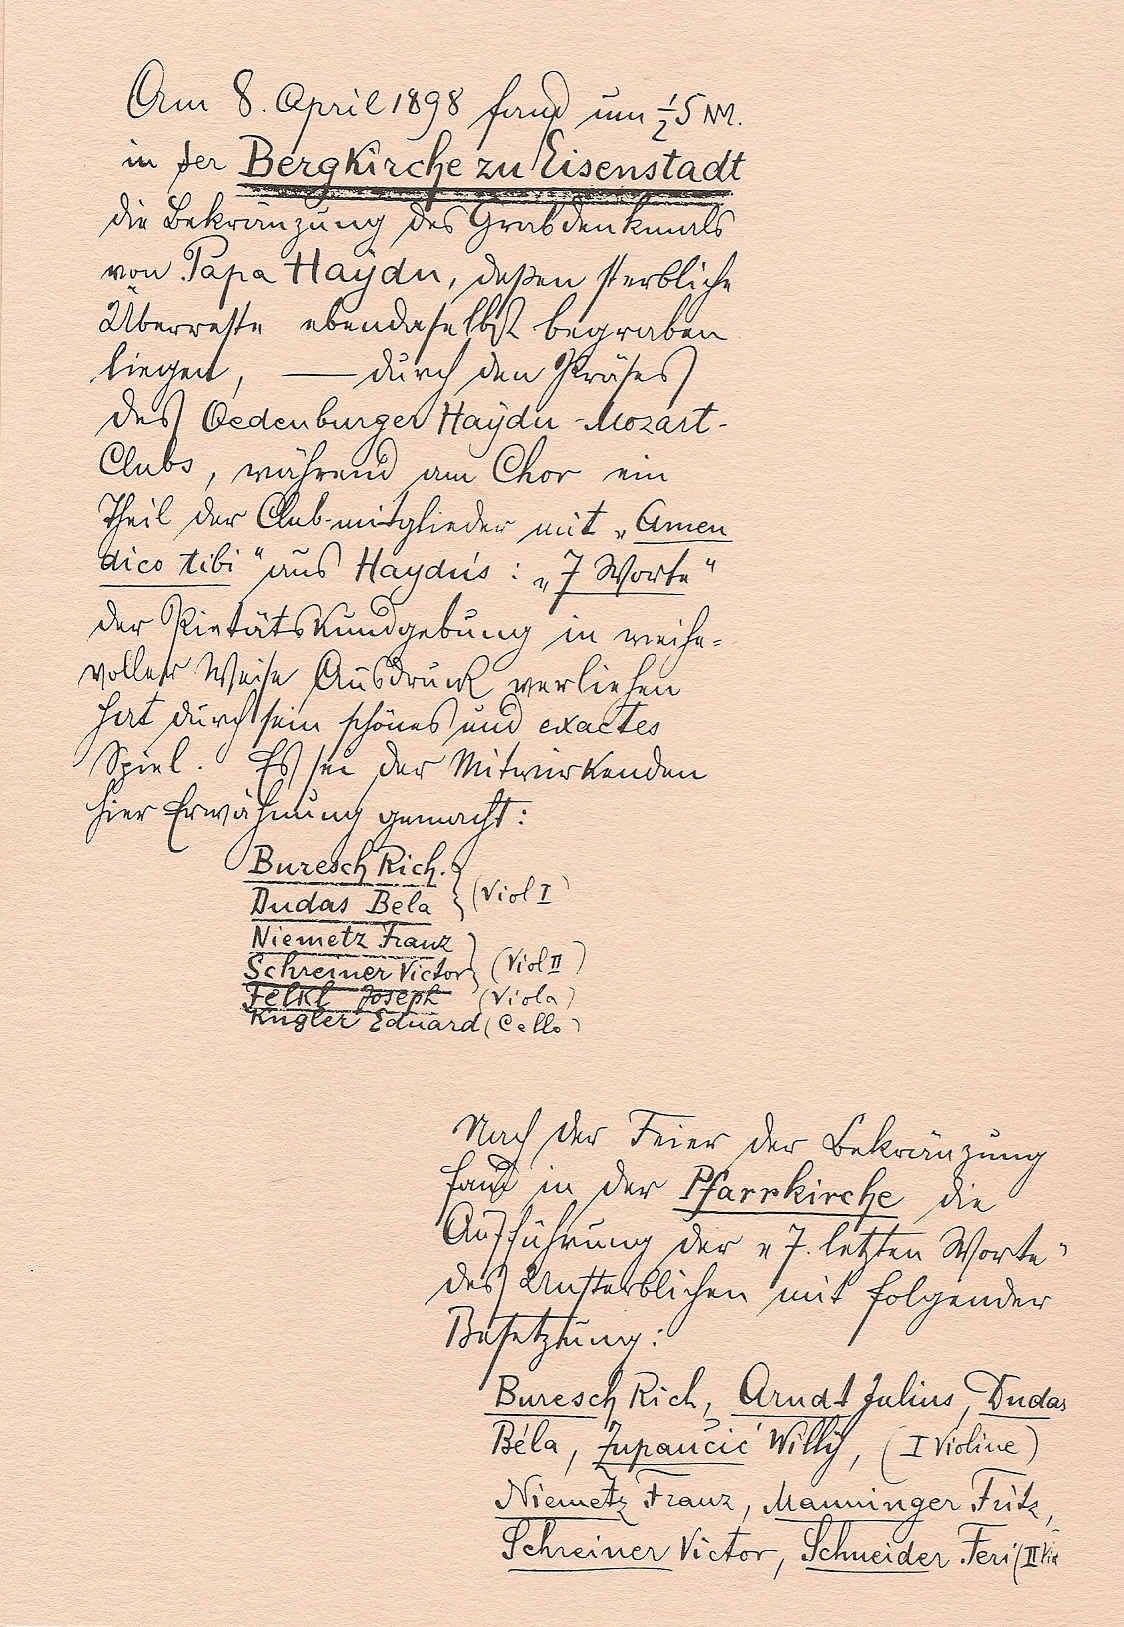 Am 8. April 1898 fand um ½5 NM.
in der Bergkirche zu Eisenstadt
die Bekränzung des Grabdenkmals
von Papa Haydn, deßen sterbliche
Überreste ebendaselbst begraben
liegen, — durch den Präses
des Oedenburger Haydn-Mozart-
Clubs, während am Chor ein
Theil der Club-mitglieder mit „Amen
dico tibi“ aus Haydn's: „7 Worte“
der Pietätskundgebung in weihe=
voller Weise Ausdruck verliehen
hat durch sein schönes und exactes
Spiel. Es sei der Mitwirkenden
hier Erwähnung gemacht:
Buresch Rich.
Dudas Bela (Viol I)
Niemetz Franz
Schreiner Victor (Viol II)
Felkl Joseph (Viola)
Kugler Eduard (Cello)
Nach der Feier der Bekränzung
fand in der Pfarrkirche die
Aufführung der „7. letzten Worte“
des Unsterblichen mit folgender
Besetzung:
Buresch Rich, Arndt Julius, Dudas
Béla, Zupančić Willy, (I Violine)
Niemetz Franz, Manninger Fritz,
Schreiner Victor, Schneider Feri (II Vio